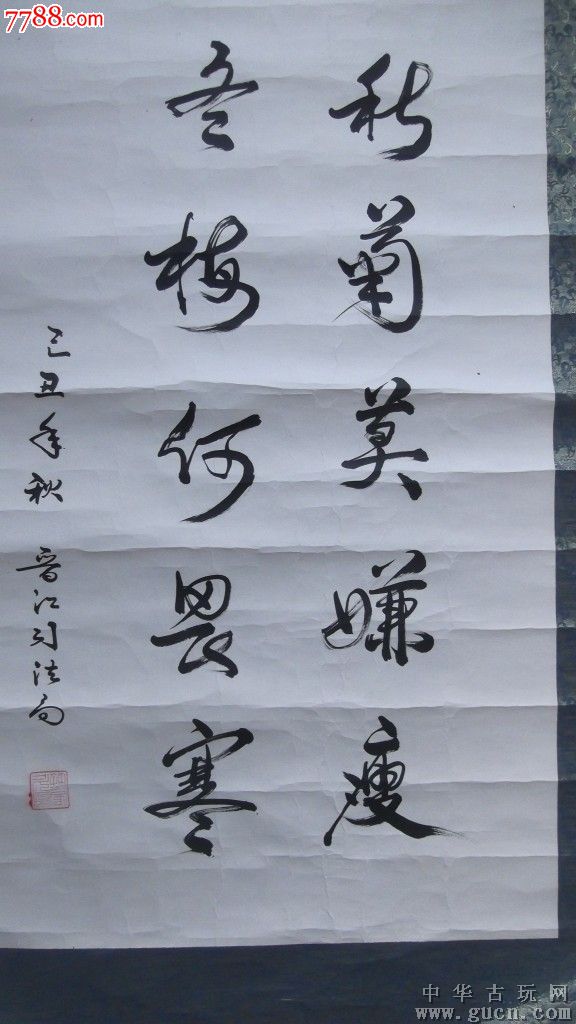 7788.com
秋菊莫嫌瘦
冬梅何畏寒
己丑年秋 晋江司法局
中华古玩网
www.gucn.com